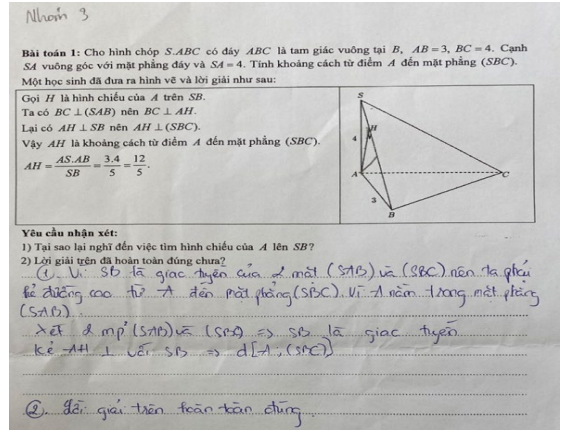 Nhóm 3
Bài toán 1: Cho hình chóp S.ABC có đáy ABC là tam giác vuông tại B, AB = 3, BC = 4. Cạnh
SA vuông góc với mặt phẳng đáy và SA = 4. Tính khoảng cách từ điểm A đến mặt phẳng (SBC).
Một học sinh đã đưa ra hình vẽ và lời giải như sau:
Gọi H là hình chiếu của A trên SB.
Ta có BC ⊥ (SAB) nên BC ⊥ AH.
Lại có AH ⊥ SB nên AH ⊥ (SBC).
Vậy AH là khoảng cách từ điểm A đến mặt phẳng (SBC).
AH = AS.AB/SB = 3.4/5 = 12/5.
S
H
4
A
C
3
B
Yêu cầu nhận xét:
1) Tại sao lại nghĩ đến việc tìm hình chiếu của A lên SB?
2) Lời giải trên đã hoàn toàn đúng chưa?
①. Vì SB là giao tuyến của 2 mặt (SAB) và (SBC) nên ta phải
kẻ đường cao từ A đến mặt phẳng (SBC). Vì A nằm trong mặt phẳng
(SAB).
Xét 2 mp (SAB) và (SBC) => SB là giao tuyến
kẻ AH ⊥ với SB => d[A; (SBC)]
②. Lời giải trên hoàn toàn đúng.